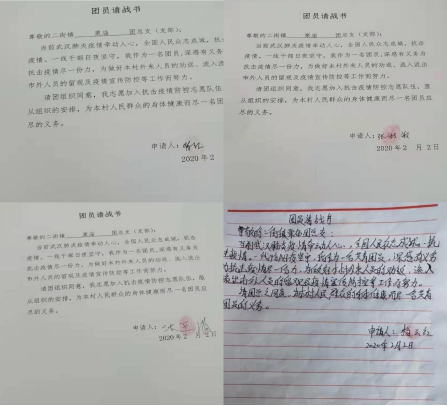 团员请战书
尊敬的二街镇 团总支(支部):
当前武汉肺炎疫情牵动人心,全国人民众志成城,抗击
疫情,一线干部日夜坚守。我作为一名团员,深感有义务为
抗击疫情尽一份力,为做好本村外来人员的劝说,流入流出
市外人员的留观及疫情宣传防控等工作而努力。
请团组织同意,我志愿加入抗击疫情防控志愿队伍,服
从组织的安排,为本村人民群众的身体健康而尽一名团员应
尽的义务。
申请人:
2020年2
团员请战书
尊敬的二街镇 团总支(支部):
当前武汉肺炎疫情牵动人心,全国人民众志成城,抗击
疫情,一线干部日夜坚守。我作为一名团员,深感有义务为
抗击疫情尽一份力,为做好本村外来人员的劝说,流入流出
市外人员的留观及疫情宣传防控等工作而努力。
请团组织同意,我志愿加入抗击疫情防控志愿队伍,服
从组织的安排,为本村人民群众的身体健康而尽一名团员应
尽的义务。
申请人:张
2020年 2 月 2 日
团员请战书
尊敬的二街镇 团总支(支部):
当前武汉肺炎疫情牵动人心,全国人民众志成城,抗击
疫情,一线干部日夜坚守。我作为一名团员,深感有义务为
抗击疫情尽一份力,为做好本村外来人员的劝说,流入流出
市外人员的留观及疫情宣传防控等工作而努力。
请团组织同意,我志愿加入抗击疫情防控志愿队伍,服
从组织的安排,为本村人民群众的身体健康而尽一名团员应
尽的义务。
申请人:
2020年2月2日
团员请战书
尊敬的二街镇 团总支
当前武汉肺炎疫情牵动人心,全国人民众志成城,抗
击疫情,一线干部日夜坚守,我作为一名共青团员,深感有义务
为抗击疫情尽一份力,为做好本村外来人员的劝说,流入
流出市外人员的留观及疫情宣传防控等工作而努力。
请团组织同意,为本村人民群众的身体健康而尽一名共青
团员的义务。
申请人:
2020年2月2日